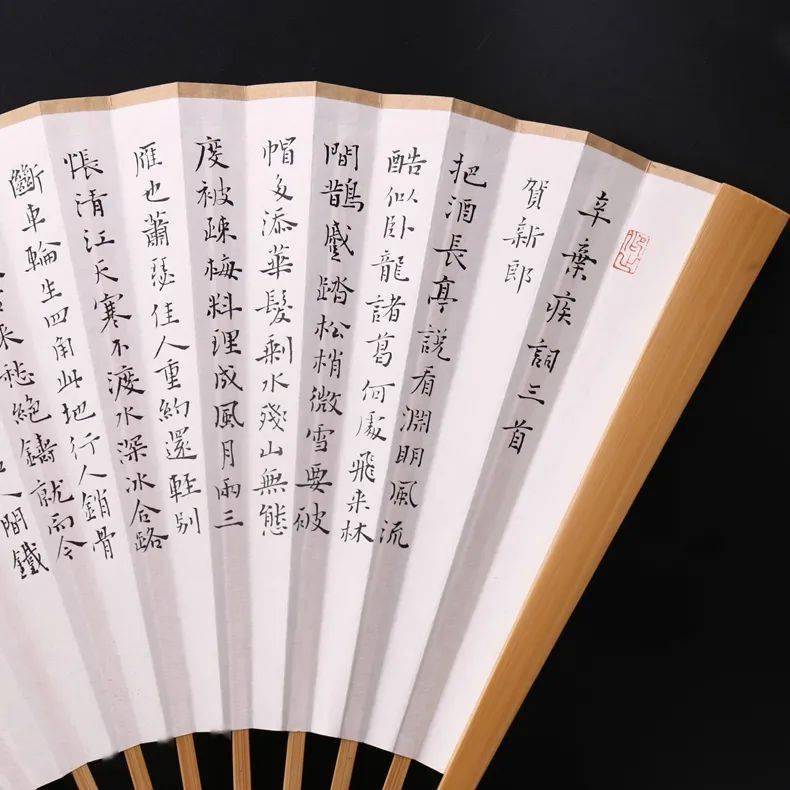 辛棄疾詞三首
賀新郎
把酒長亭說看淵明風流
酷似卧龍諸葛何處飛来林
間鵲蹙踏松梢微雪要破
帽多添華髮剩水殘山無態
度被疎梅料理成風月兩三
雁也蕭瑟佳人重約還輕別
悵清江天寒不渡水深冰合路
斷車輪生四角此地行人銷骨
来愁絕鑄就而今
人間鐵